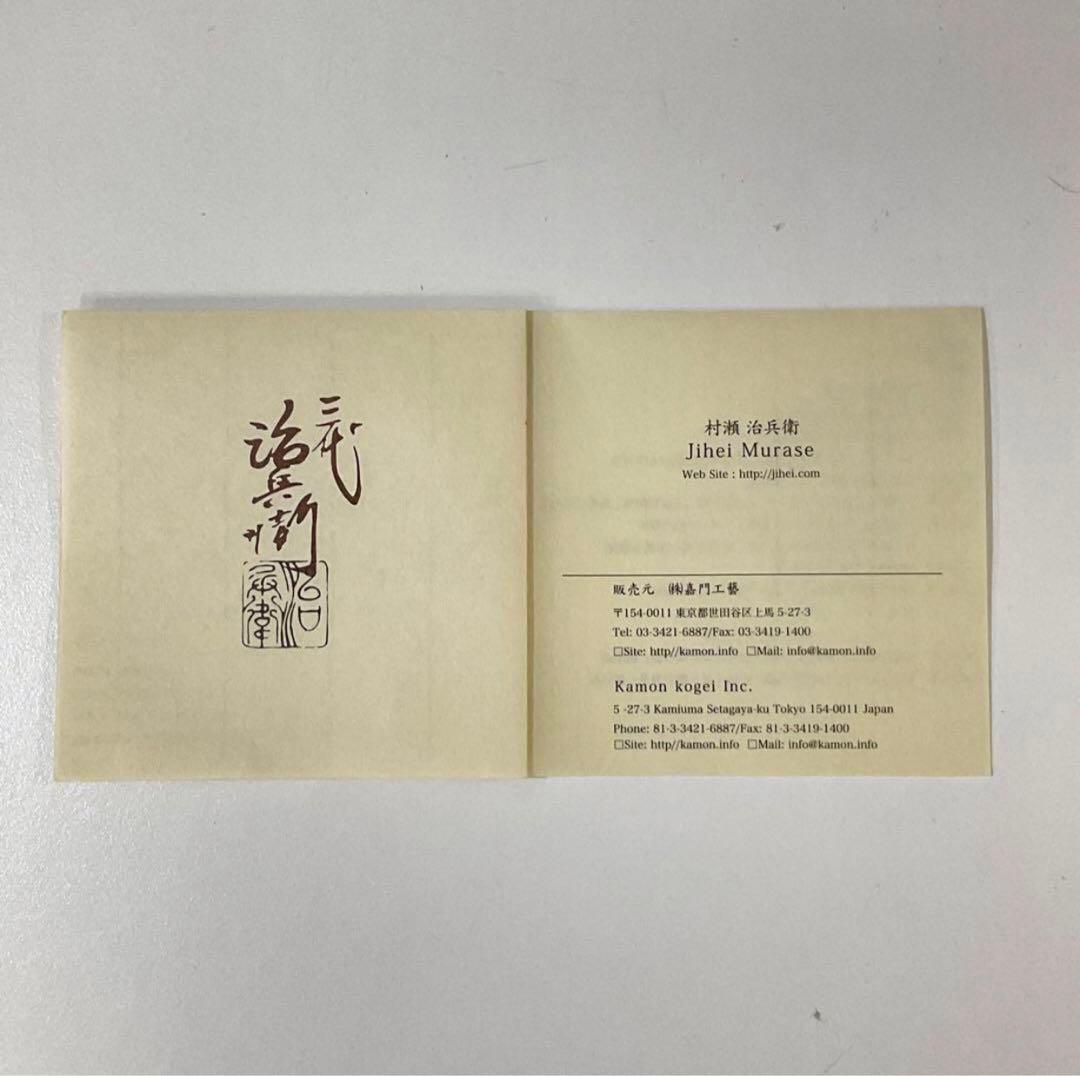 三代
治兵衛
治兵衛
村瀬 治兵衛
Jihei Murase
Web Site : http://jihei.com
販売元 ㈱嘉門工藝
〒154-0011 東京都世田谷区上馬 5-27-3
Tel: 03-3421-6887/Fax: 03-3419-1400
□Site: http//kamon.info □Mail: info@kamon.info
Kamon kogei Inc.
5 -27-3 Kamiuma Setagaya-ku Tokyo 154-0011 Japan
Phone: 81-3-3421-6887/Fax: 81-3-3419-1400
□Site: http//kamon.info □Mail: info@kamon.info